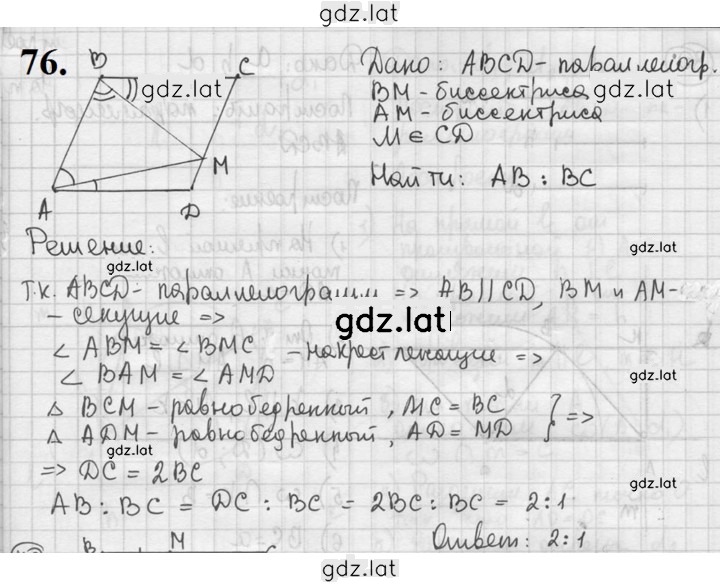 gdz.lat
76.
B
C
gdz.lat
A
D
M
Дано: ABCD - параллелогр.
BM - биссектриса gdz.lat
AM - биссектриса
M ∈ CD
Найти: AB : BC
Решение:
gdz.lat
т.к. ABCD - параллелограмм => AB || CD, BM и AM -
- секущие =>
gdz.lat
∠ ABM = ∠ BMC - накрест лежащие =>
∠ BAM = ∠ AMD
gdz.lat
△ BCM - равнобедренный, MC = BC } =>
△ ADM - равнобедренный, AD = MD
gdz.lat
=> DC = 2BC
AB : BC = DC : BC = 2BC : BC = 2:1
Ответ: 2:1
B M
gdz.lat